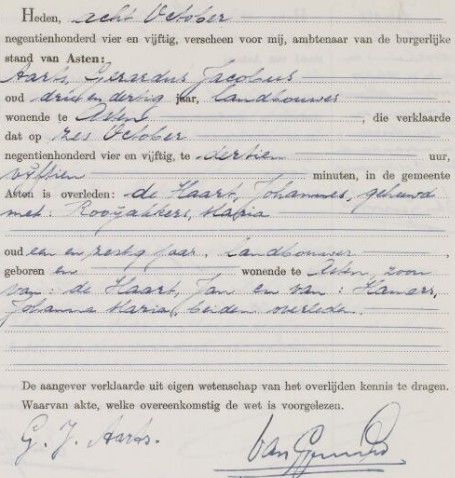 Heden, acht October
negentienhonderd vier en vijftig, verscheen voor mij, ambtenaar van de burgerlijke
stand van Asten:
Aarts, Gerardus Jacobus
oud drie en dertig jaar, landbouwer
wonende te Asten, die verklaarde
dat op zes October
negentienhonderd vier en vijftig, te dertien uur,
vijftien minuten, in de gemeente
Asten is overleden: de Haart, Johannes, gehuwd
met: Rooijakkers, Maria
oud een en zestig jaar, landbouwer,
geboren en wonende te Asten, zoon
van: de Haart, Jan en van:
Johanna Maria, beiden overleden.
De aangever verklaarde uit eigen wetenschap van het overlijden kennis te dragen.
Waarvan akte, welke overeenkomstig de wet is voorgelezen.
G. J. Aarts.